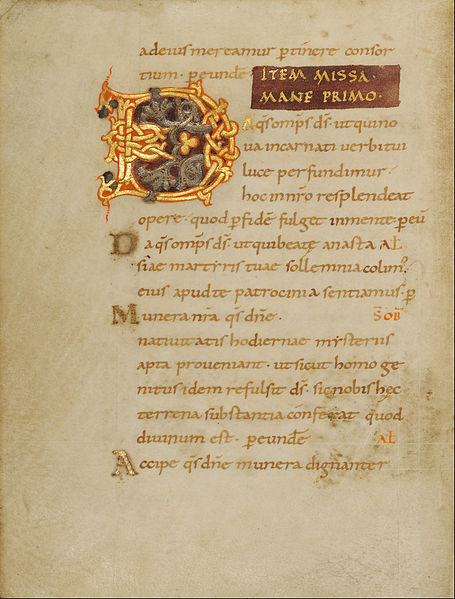 ad eius mereamur ꝑtinere consor
tium · ꝑ eundē
ITEM MISSA ·
MANE PRIMO ·
DA q̄s omp̄s d̄s · ut qui no
ua incarnati uerbi tui
luce perfundimur ·
hoc in nr̄o resplendeat
opere · quod ꝑ fidē fulget in mente · ꝑ eū
Da q̄s omp̄s d̄s · ut qui beatę anasta AL̄
siae martyris tuae sollemnia colim;
eius apud te patrocinia sentiamus · ꝑ
Munera nr̄a q̄s dn̄e · S̄ OB̄
natiuitatis hodiernae mysteriis
apta proueniant · ut sicut homo ge
nitus idem refulsit d̄s · sic nobis hęc
terrena substantia cōferat quod
diuinum est · ꝑ eundē AL̄
Accipe q̄s dn̄e munera dignanter